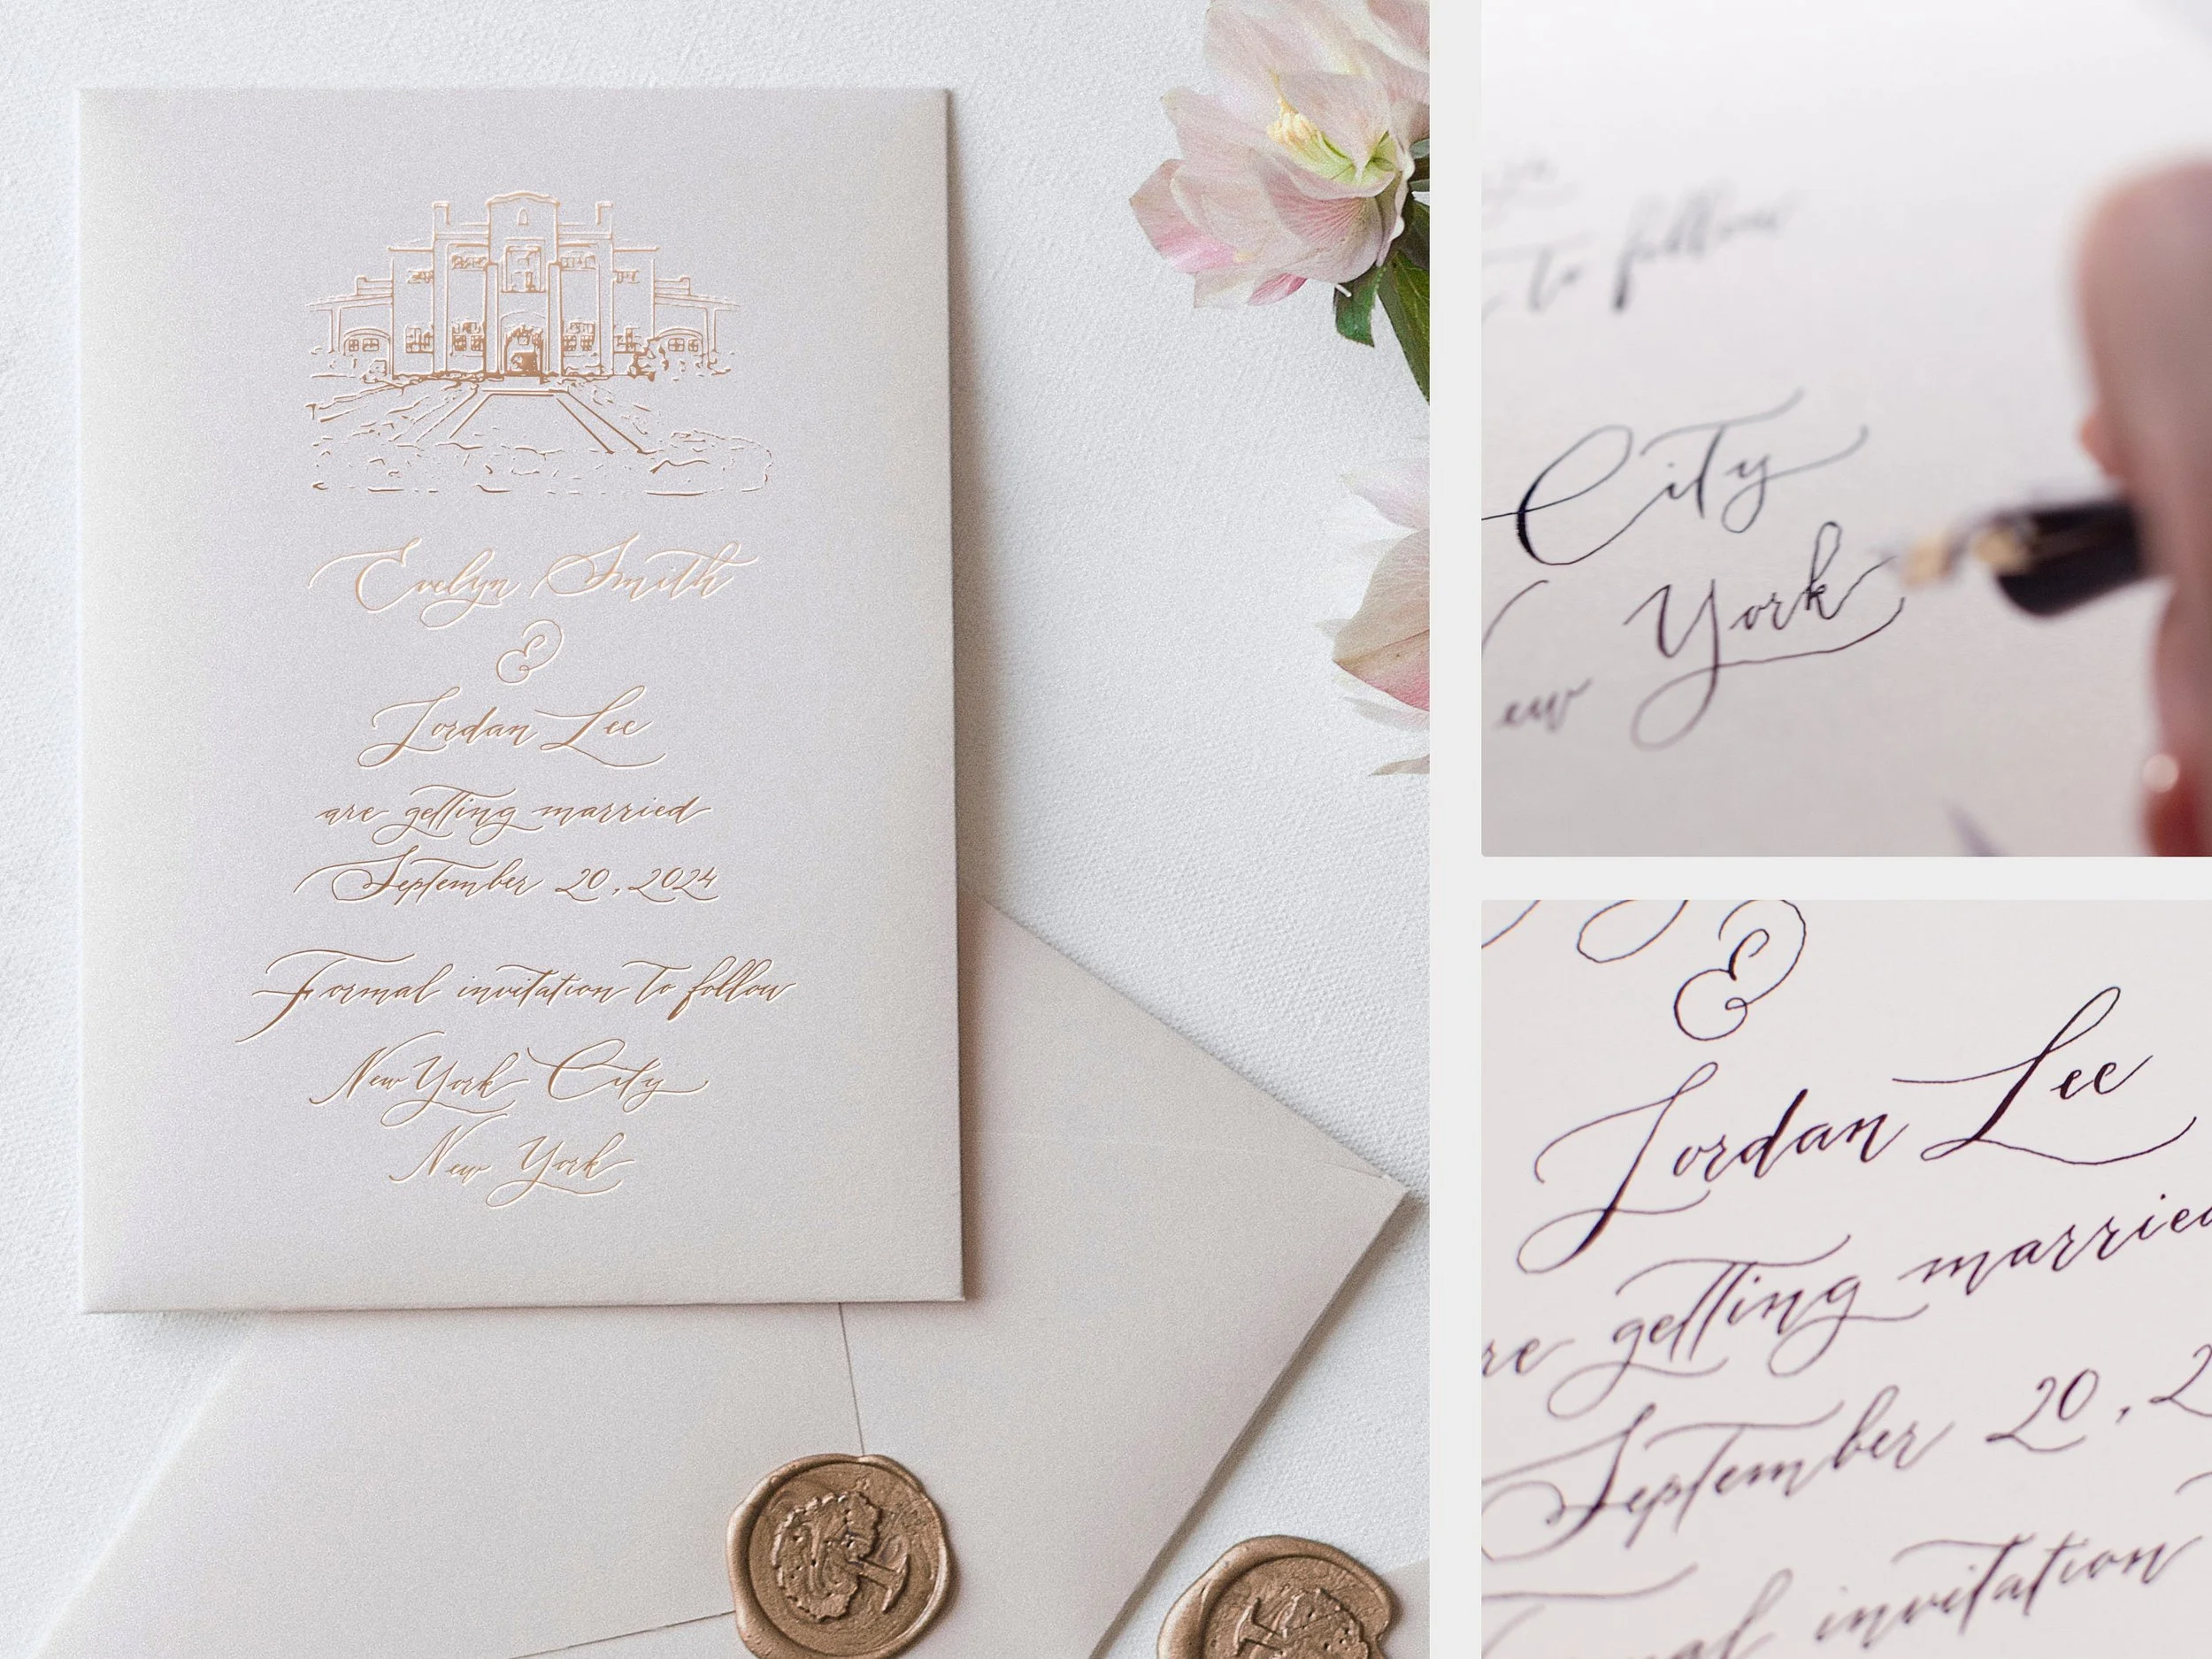 Evelyn Smith
&
Jordan Lee
are getting married
September 20, 2024
Formal invitation to follow
New York City
New York
to follow
City
York
ew
&
Jordan Lee
re getting married
September 20, 2
mal invitation